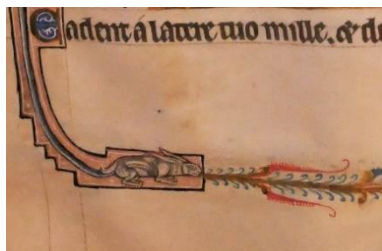 Cadent á latere tuo mille, & d